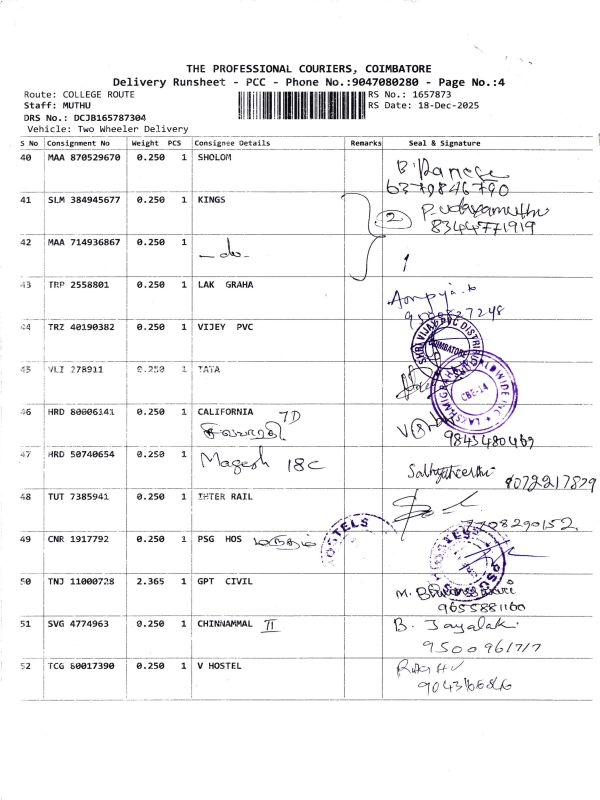 THE PROFESSIONAL COURIERS, COIMBATORE
Delivery Runsheet - PCC - Phone No.:9047080280 - Page No.:4
Route: COLLEGE ROUTE
RS No.: 1657873
Staff: MUTHU
RS Date: 18-Dec-2025
DRS No.: DCJB165787304
Vehicle: Two Wheeler Delivery
S No Consignment No Weight PCS Consignee Details Remarks Seal & Signature
40 MAA 870529670 0.250 1 SHOLOM
6370846790
41 SLM 384945677 0.250 1 KINGS
2 P. udayamuthu
8344771919
42 MAA 714936867 0.250 1
-do-
43 TRP 2558801 0.250 1 LAK GRAHA
44 TRZ 40190382 0.250 1 VIJEY PVC
COIMBATORE
45 VLI 278911 0.250 1 TATA
CBE-14
46 HRD 80006141 0.250 1 CALIFORNIA 7D
9843480469
47 HRD 50740654 0.250 1 Magesh 18C
8072217879
48 TUT 7385941 0.250 1 INTER RAIL
7708290152
49 CNR 1917792 0.250 1 PSG HOS
HOSTELS
50 TNJ 11000728 2.365 1 GPT CIVIL
9655881160
51 SVG 4774963 0.250 1 CHINNAMMAL II
B. Jayalaki
9500961717
52 TCG 80017390 0.250 1 V HOSTEL